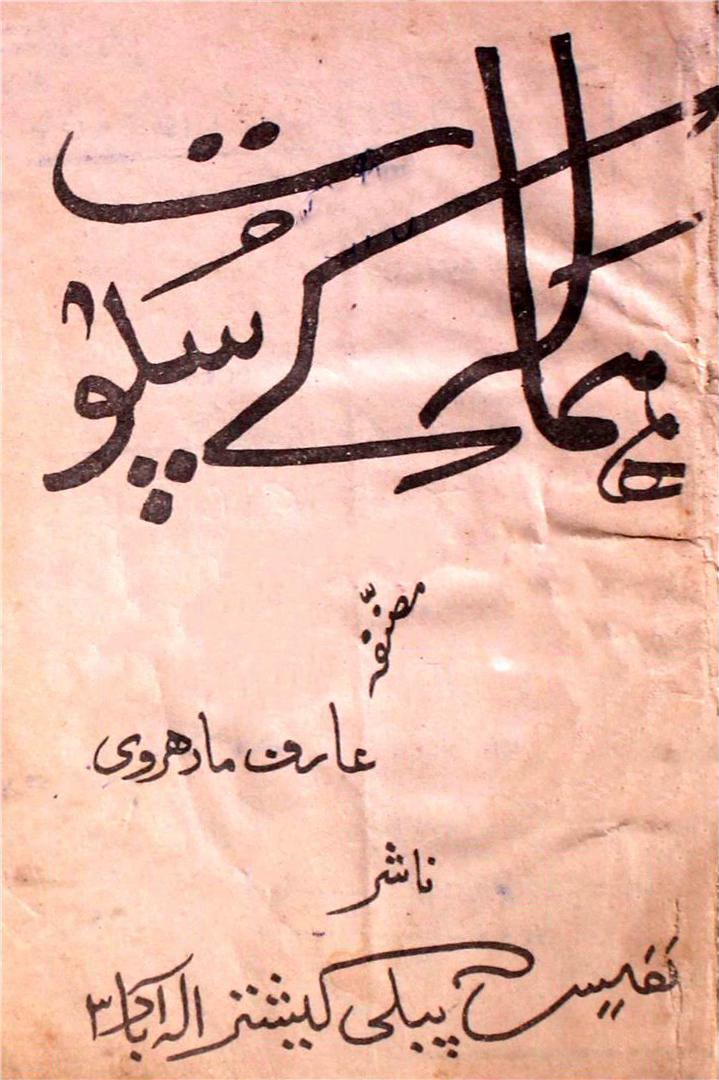 ہمالہ کے سپوت
مصنفہ
عارف مارھروی
ناشر
نفیس پبلی کیشنز الہ آباد ۳